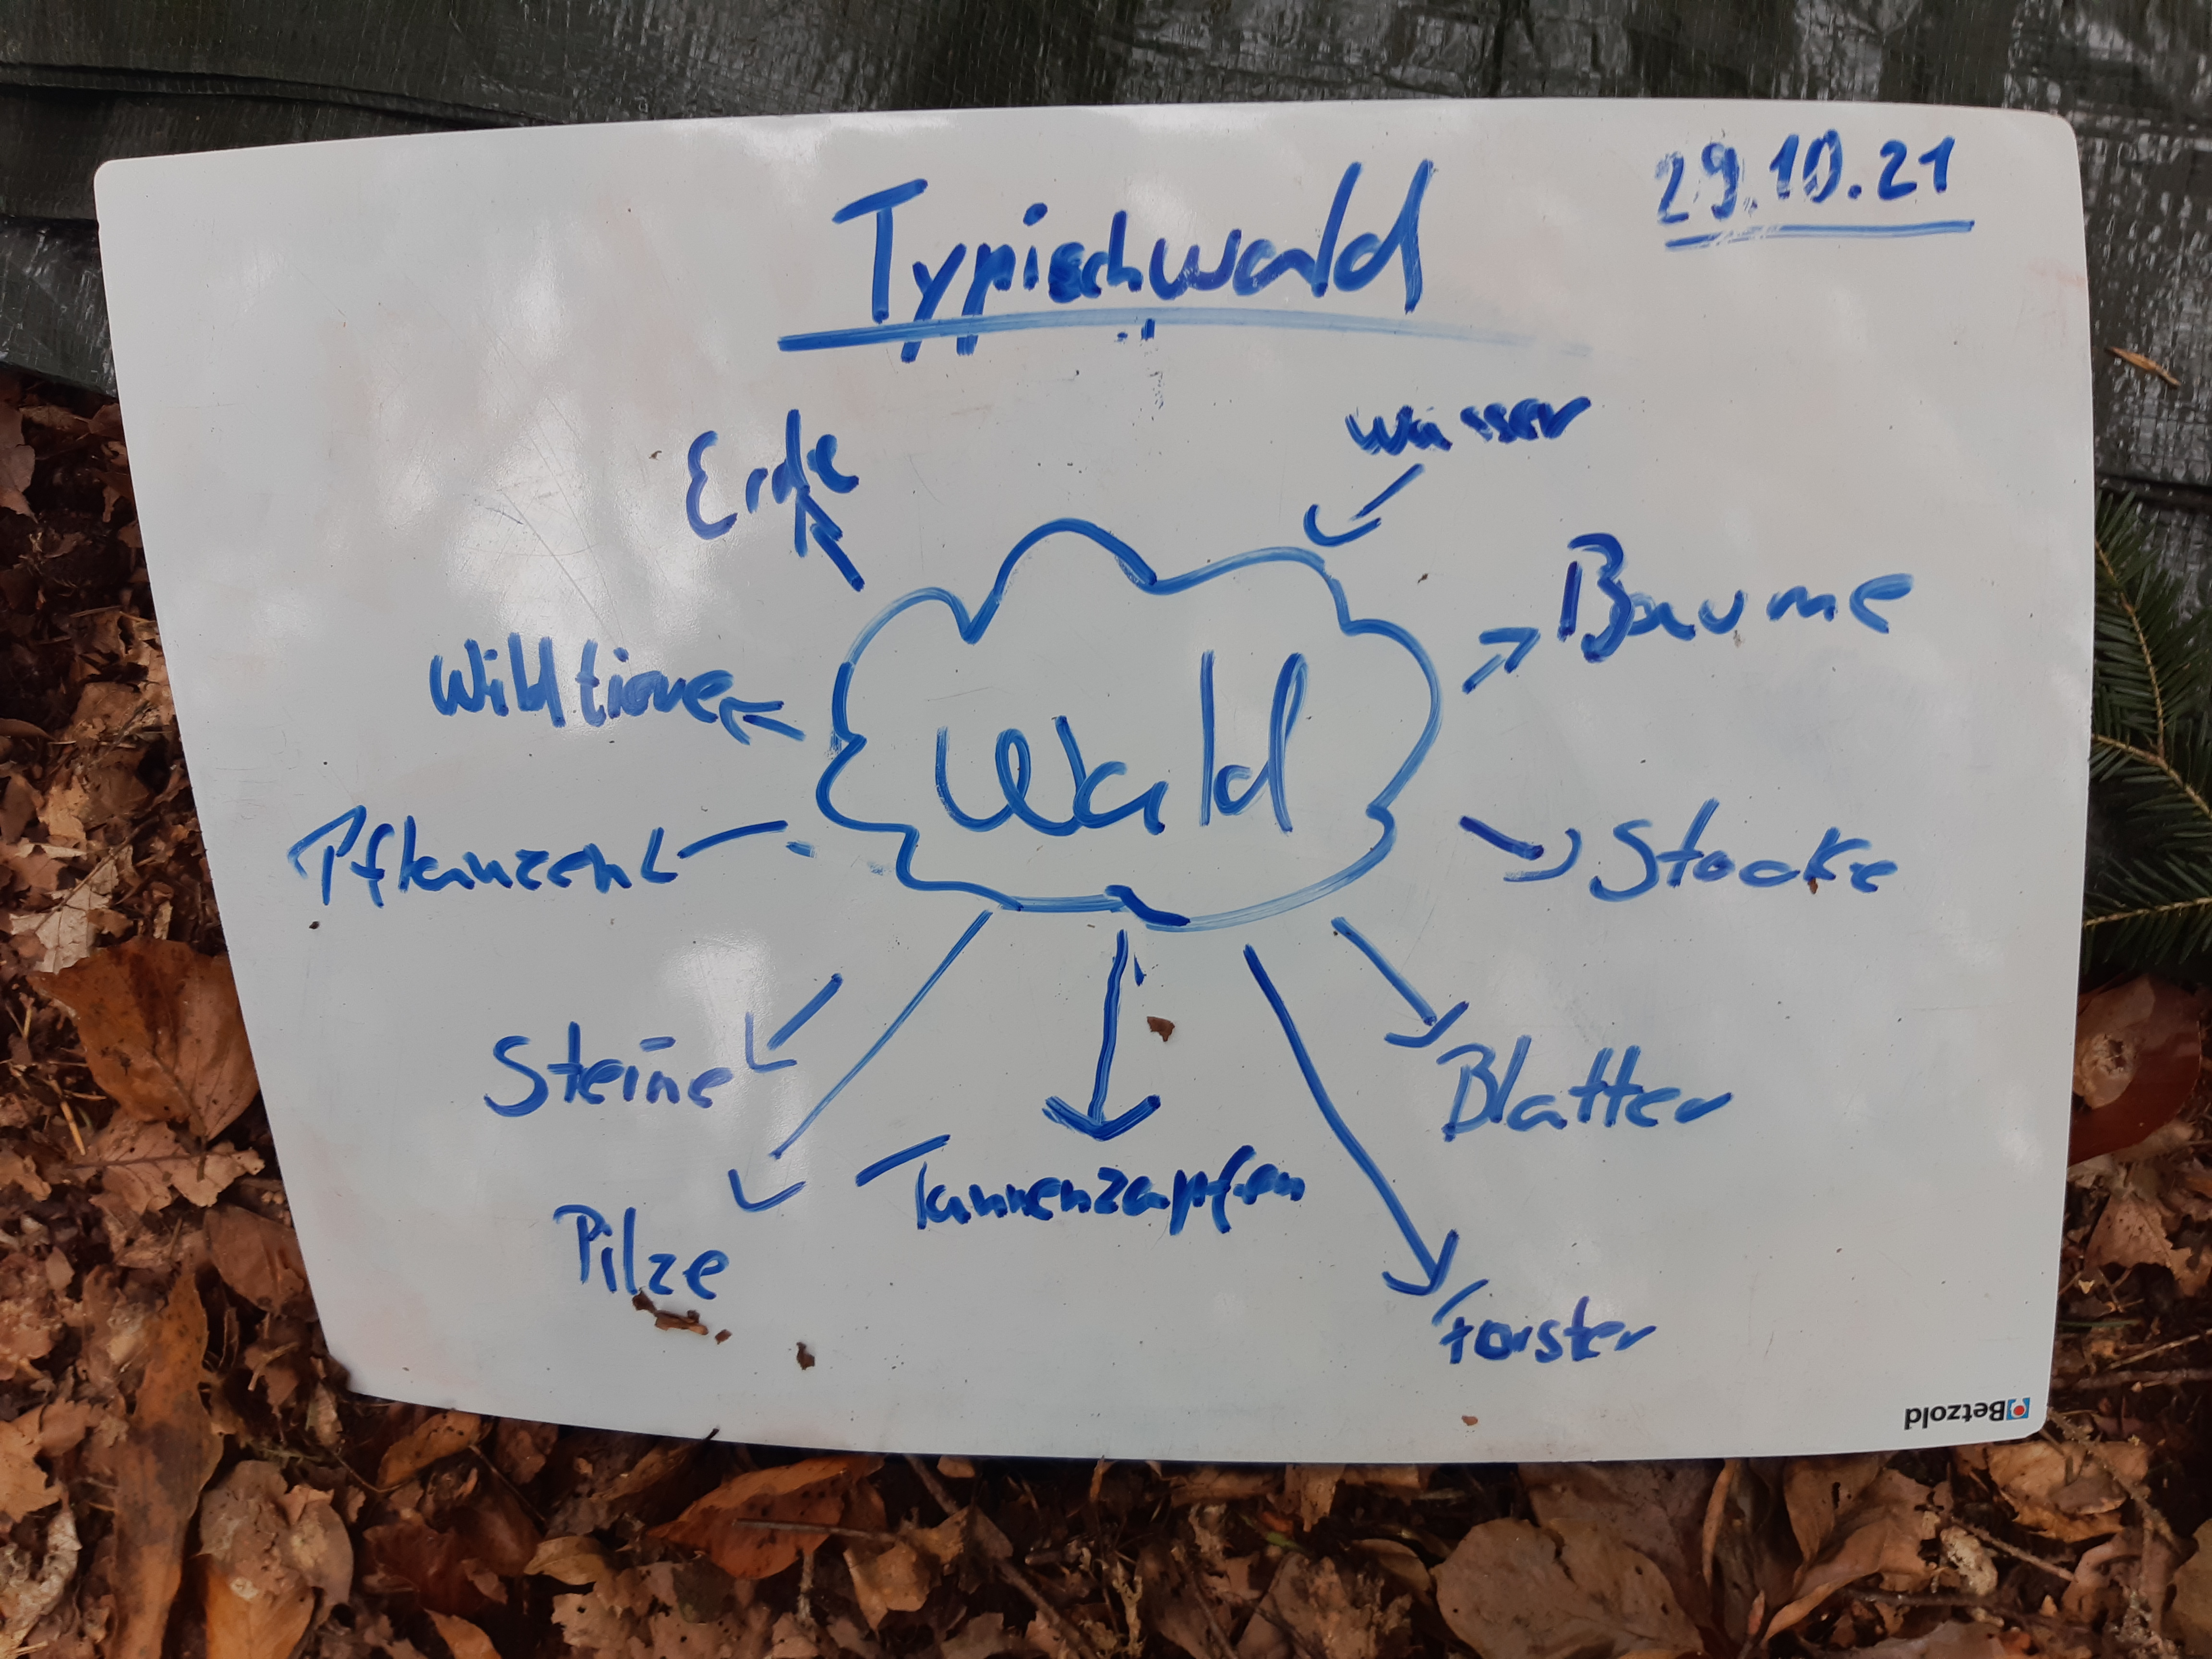 29.10.21
Typischwald
Erde
Wasser
Baume
Wildtiere
Wald
Pflanzen
Stocke
Steine
Blatter
Pilze
Tannenzapfen
Forster
Betzold